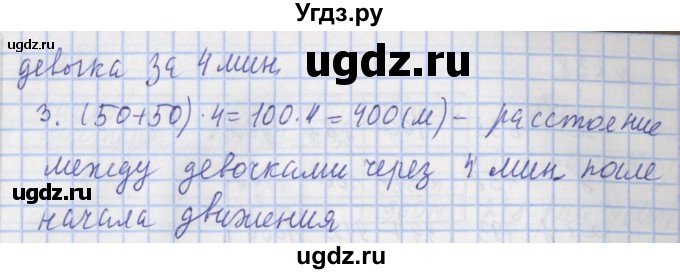 Угдз.ру
девочка за 4 мин.
ugdz.ru
ugdz.ru
3. (50+50)·4=100·4=400(м)- расстояние
между девочками через 4 мин. после
ugdz.ru
начала движения
ugdz.ru
ugdz.ru